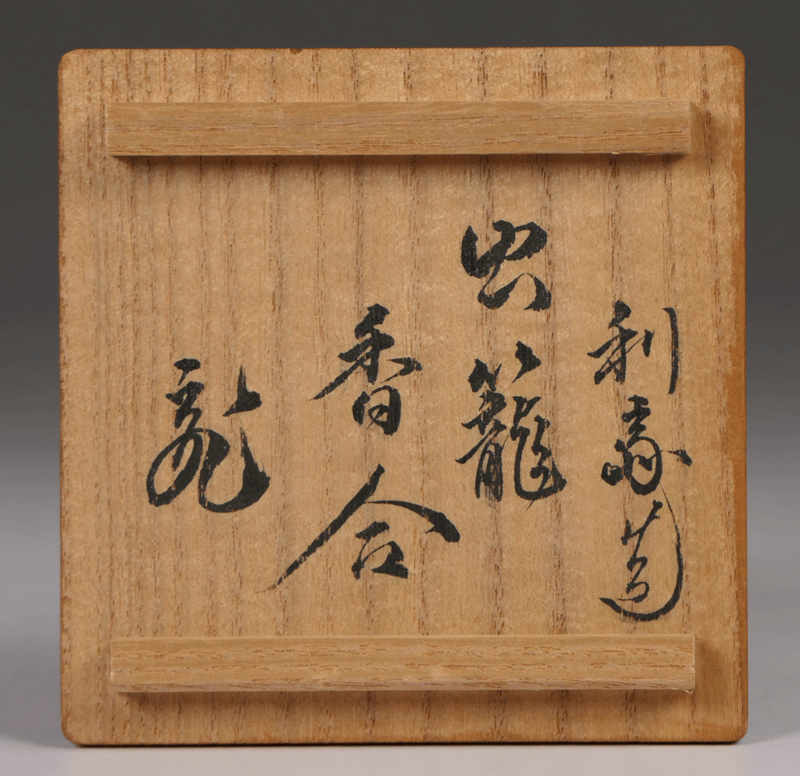 利斎造
虫籠
香合